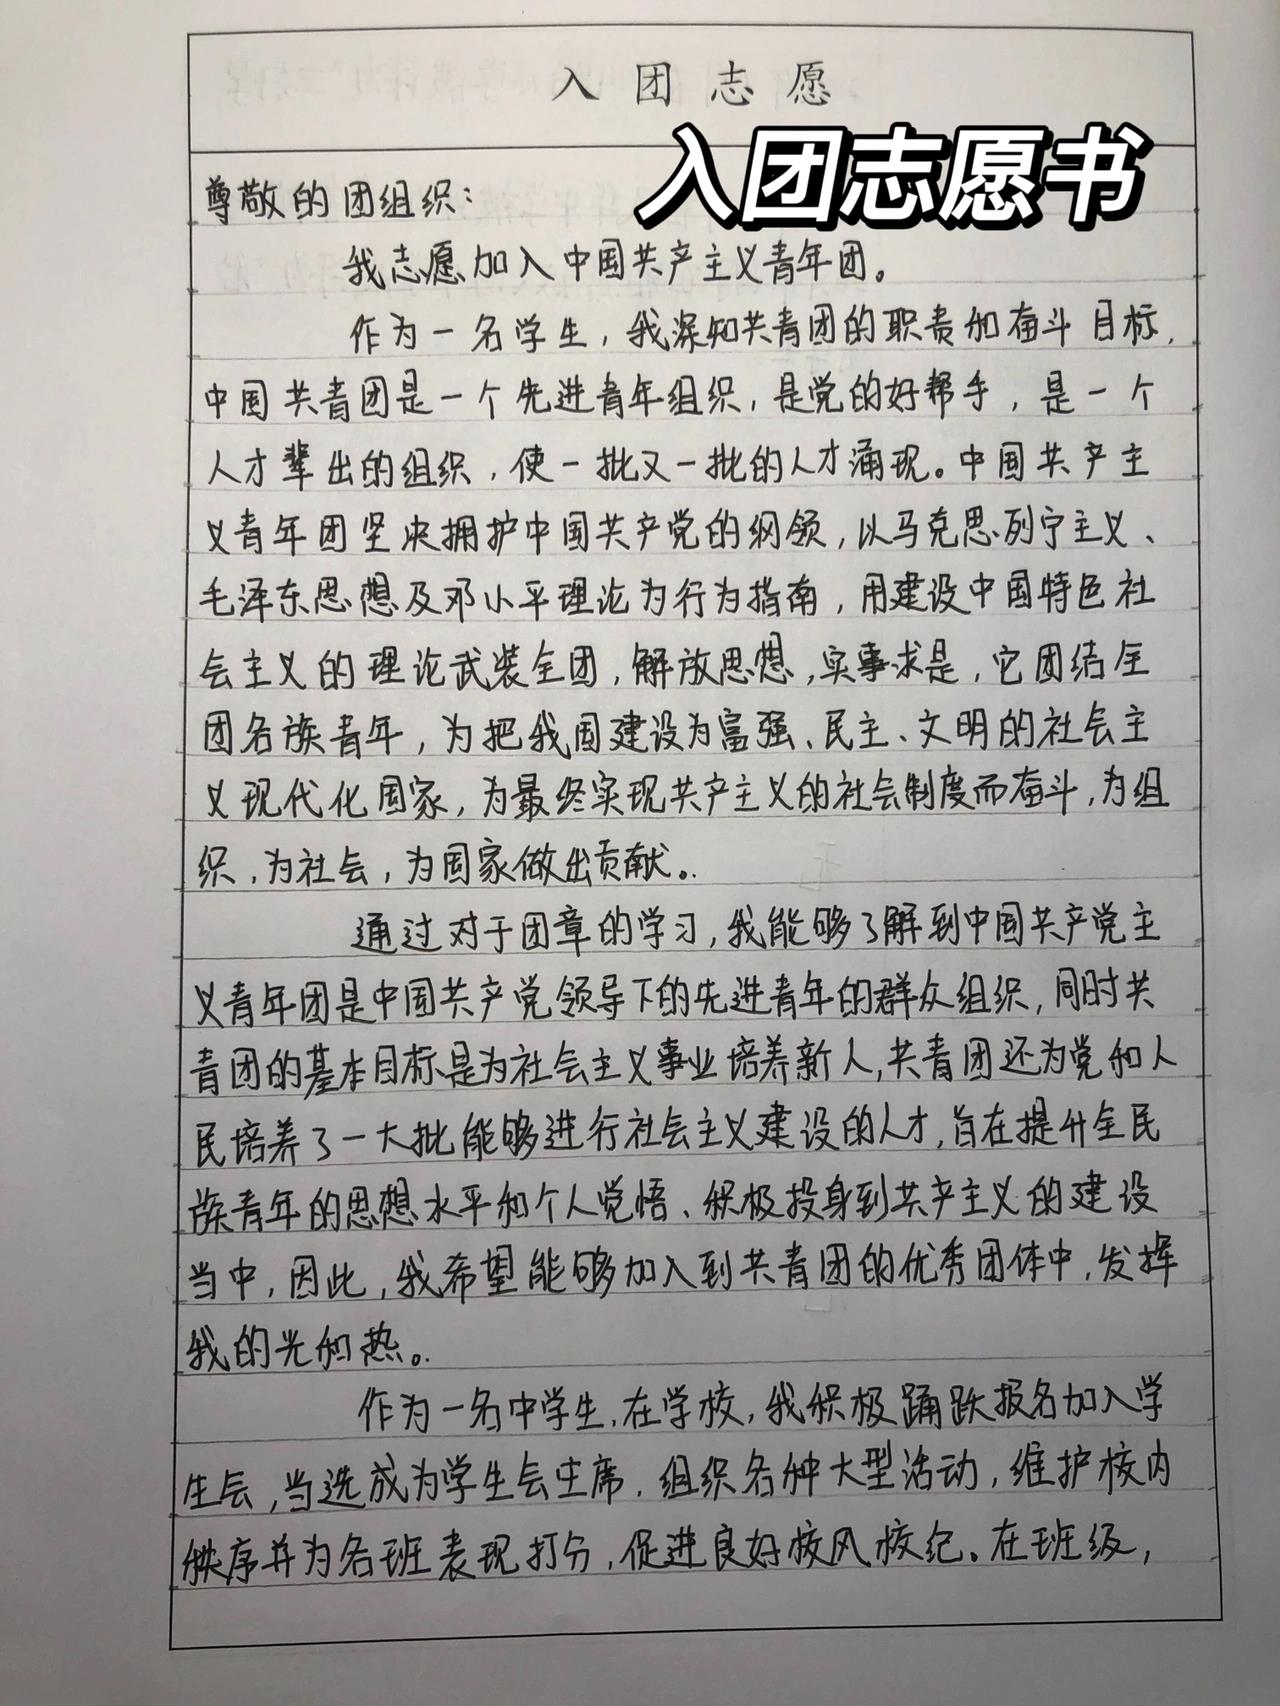 入团志愿
入团志愿书
尊敬的团组织：
我志愿加入中国共产主义青年团。
作为一名学生，我深知共青团的职责和奋斗目标，
中国共青团是一个先进青年组织，是党的好帮手，是一个
人才辈出的组织，使一批又一批的人才涌现。中国共产主
义青年团坚决拥护中国共产党的纲领，以马克思列宁主义、
毛泽东思想及邓小平理论为行为指南，用建设中国特色社
会主义的理论武装全团，解放思想，实事求是，它团结全
团各族青年，为把我国建设为富强、民主、文明的社会主
义现代化国家，为最终实现共产主义的社会制度而奋斗，为组
织，为社会，为国家做出贡献。
通过对于团章的学习，我能够了解到中国共产党主
义青年团是中国共产党领导下的先进青年的群众组织，同时共
青团的基本目标是为社会主义事业培养新人，共青团还为党和人
民培养了一大批能够进行社会主义建设的人才，旨在提升全民
族青年的思想水平和个人觉悟、积极投身到共产主义的建设
当中，因此，我希望能够加入到共青团的优秀团体中，发挥
我的光和热。
作为一名中学生，在学校，我积极踊跃报名加入学
生会，当选成为学生会主席，组织各种大型活动，维护校内
秩序并为各班表现打分，促进良好校风校纪。在班级，